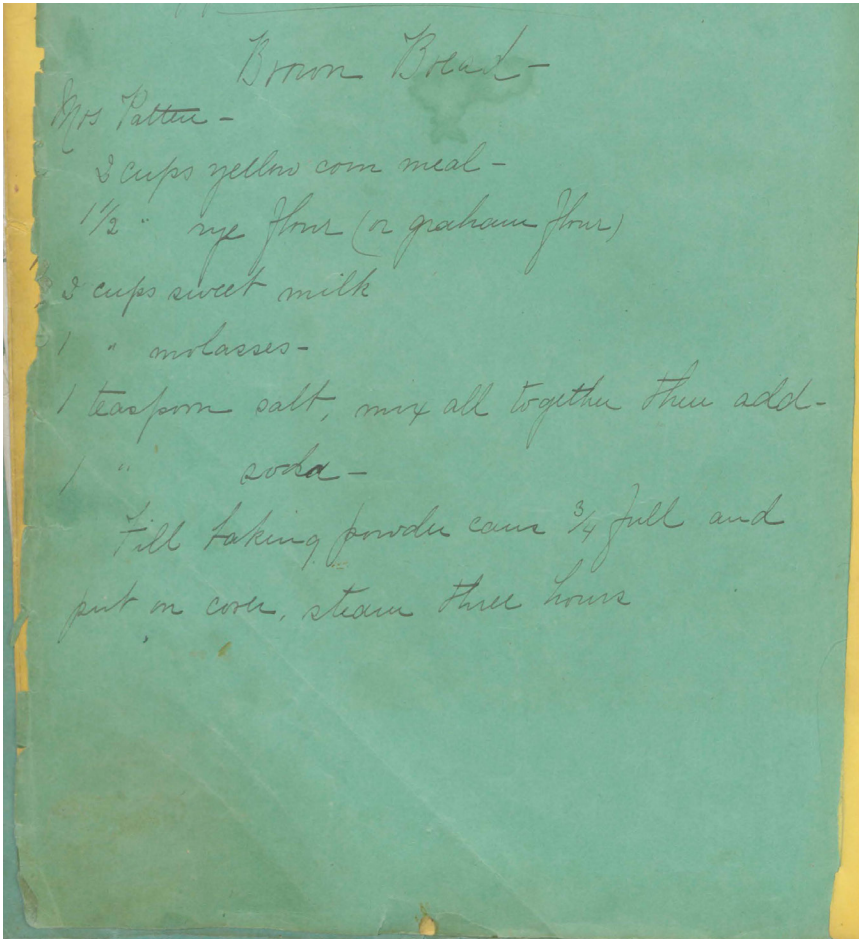 Brown Bread -
Mrs Patten -
2 cups yellow corn meal -
1 1/2 " rye flour (or graham flour)
2 cups sweet milk
1 " molasses -
1 teaspoon salt, mix all together then add -
1 " soda -
Fill baking powder cans 3/4 full and
put on cover, steam three hours